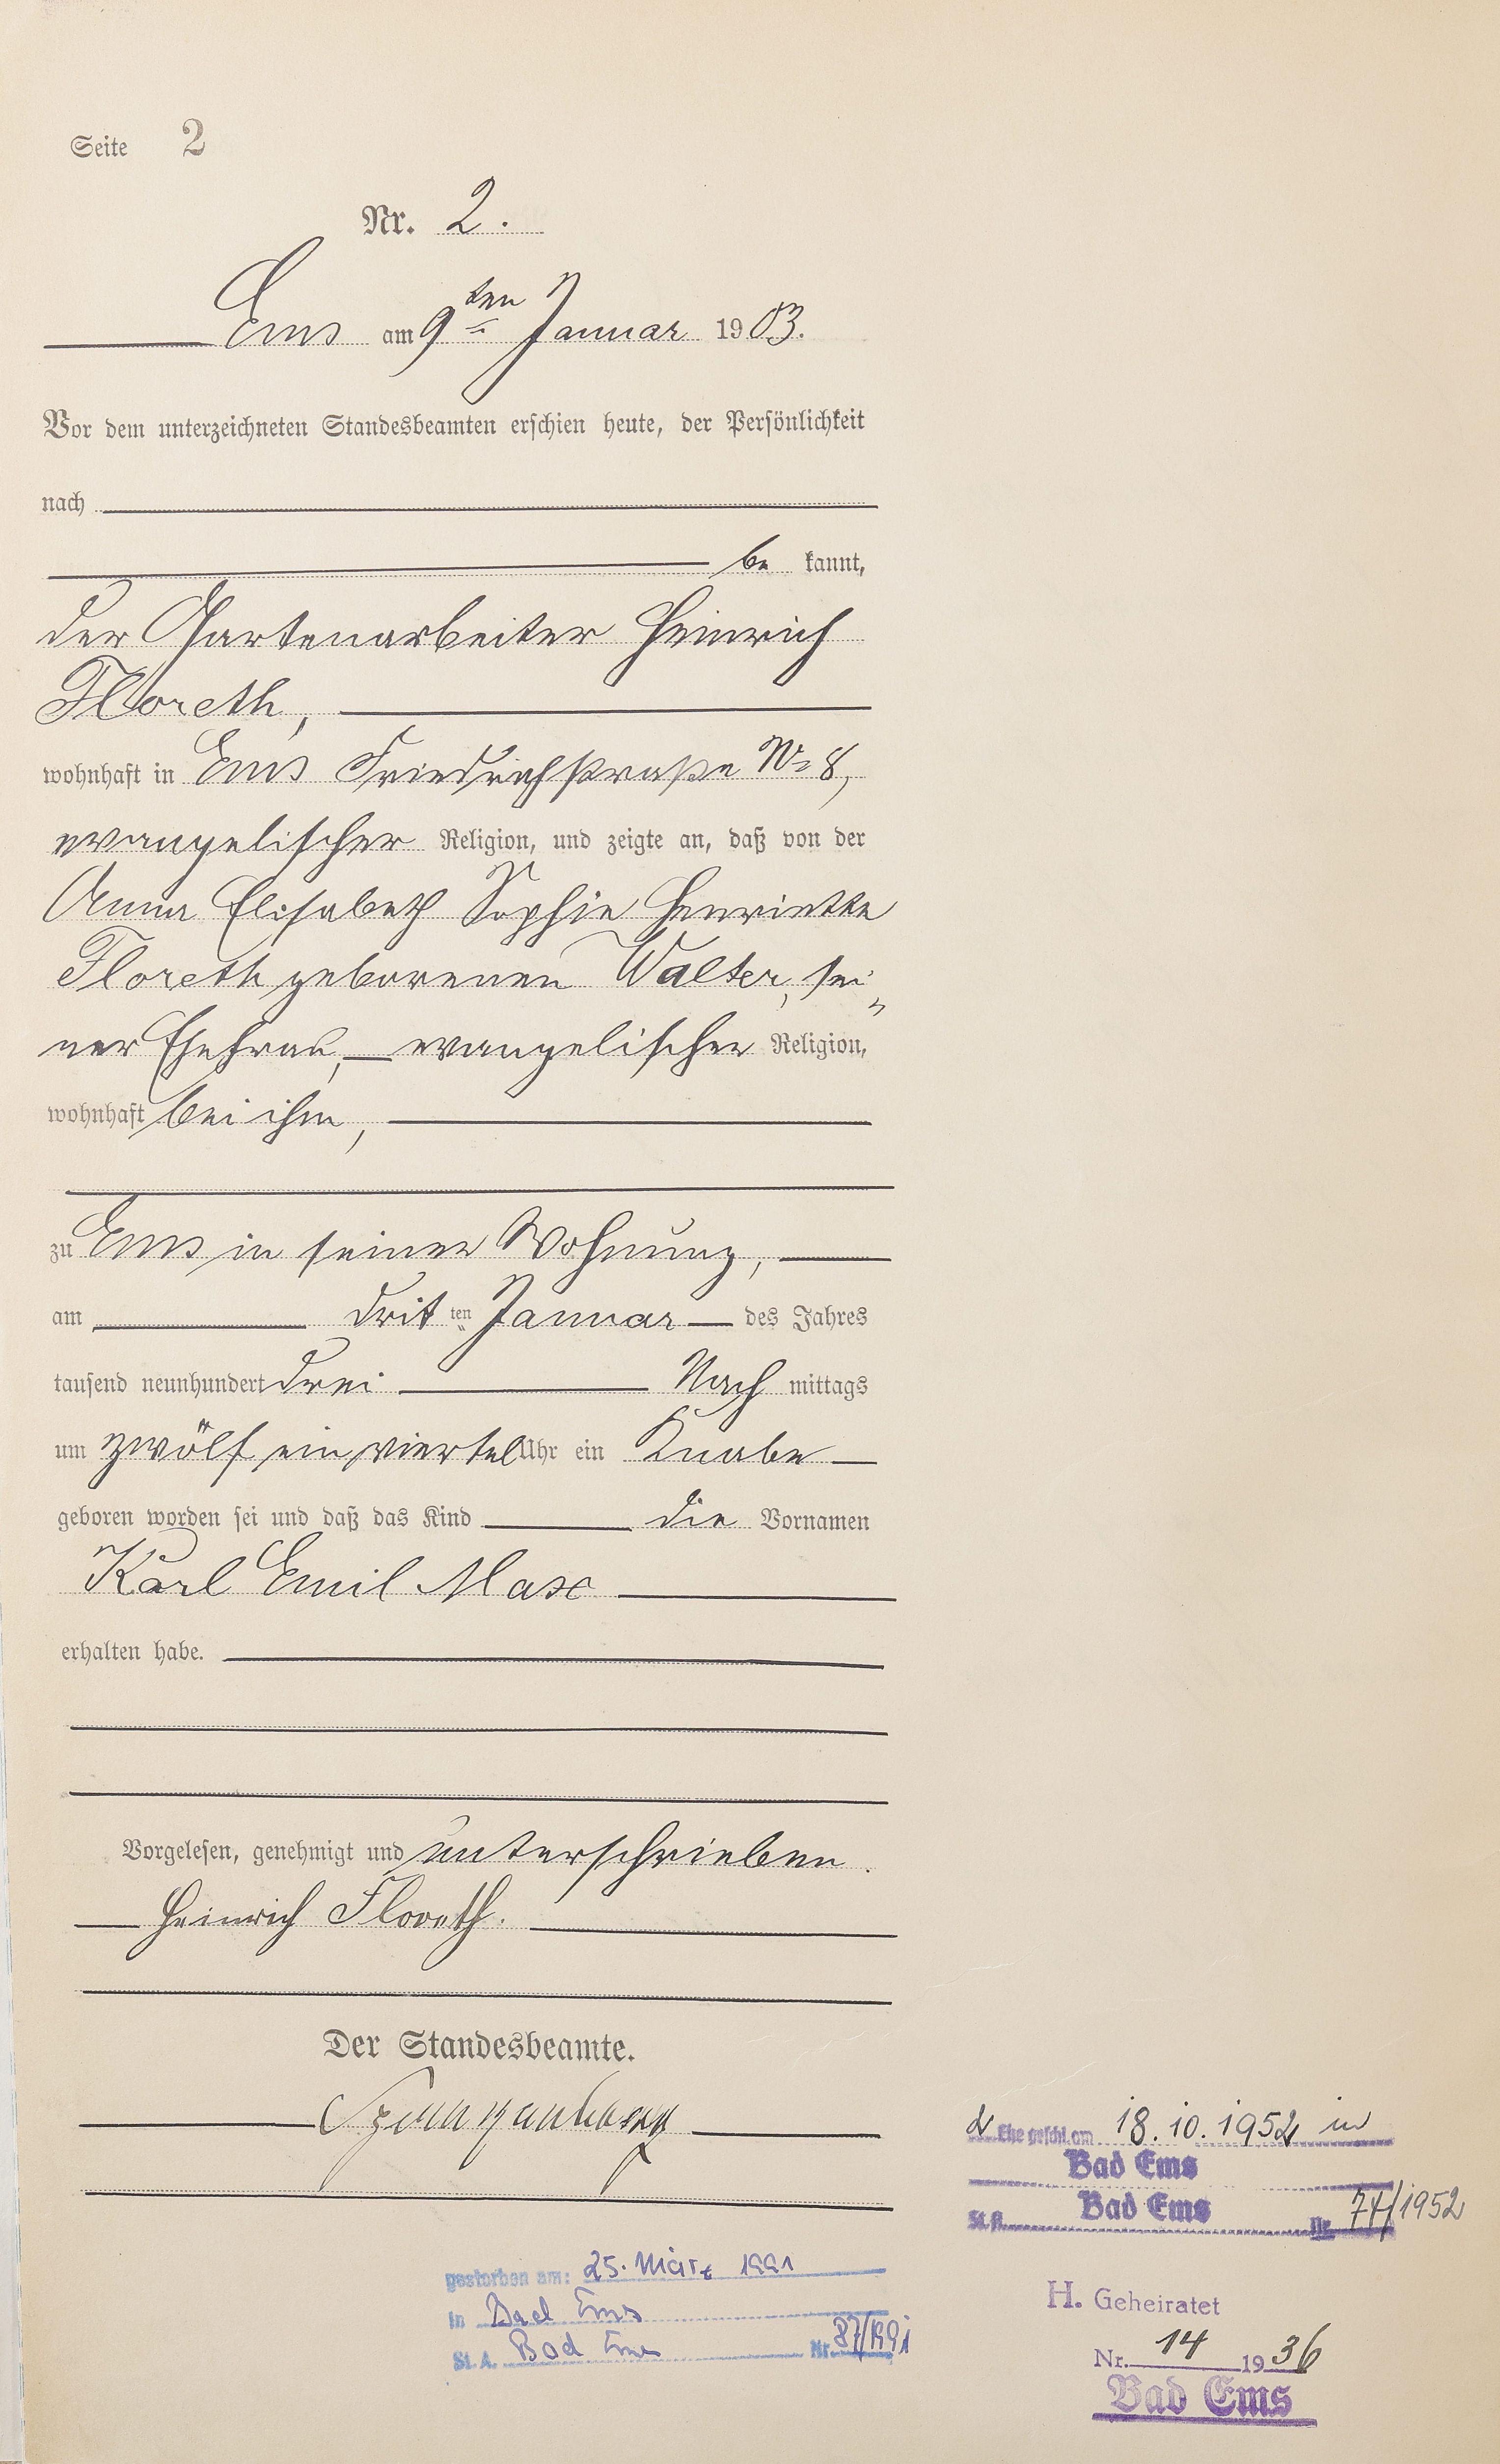 Seite 2
Nr. 2.
Ems am 9ten Januar 1903.
Vor dem unterzeichneten Standesbeamten erschien heute, der Persönlichkeit
nach
be kannt,
der Gartenarbeiter Heinrich
Floreth,
wohnhaft in Ems Friedrichstraße No 8,
evangelischer Religion, und zeigte an, daß von der
Anna Elisabeth Sophie Henriette
Floreth geborenen Walter, sei„
ner Ehefrau, evangelischer Religion,
wohnhaft bei ihm,
zu Ems in seiner Wohnung,
am drit ten Januar des Jahres
tausend neunhundert drei Nach mittags
um zwölf ein viertel Uhr ein Knabe
geboren worden sei und daß das Kind die Vornamen
Karl Emil Max
erhalten habe.
Vorgelesen, genehmigt und unterschrieben.
Heinrich Floreth.
Der Standesbeamte.
2 Ehe geschl. am 18.10.1952 in
Bad Ems
St. A. Bad Ems Nr. 74/1952
gestorben am: 25. März 1991
in Bad Ems
St. A. Bad Ems Nr. 87/1991
H. Geheiratet
Nr. 14 1936
Bad Ems